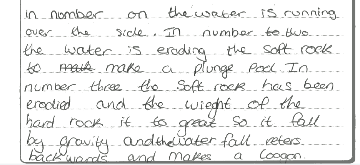 in number on the water is running
over the side. In number to two
the water is eroding the soft rock
to make a plunge Pool In
number three the soft rock has been
erodied and the wieght of the
hard rock it to great so it fall
by gravity and the water fall reters
backwards and makes a Googon